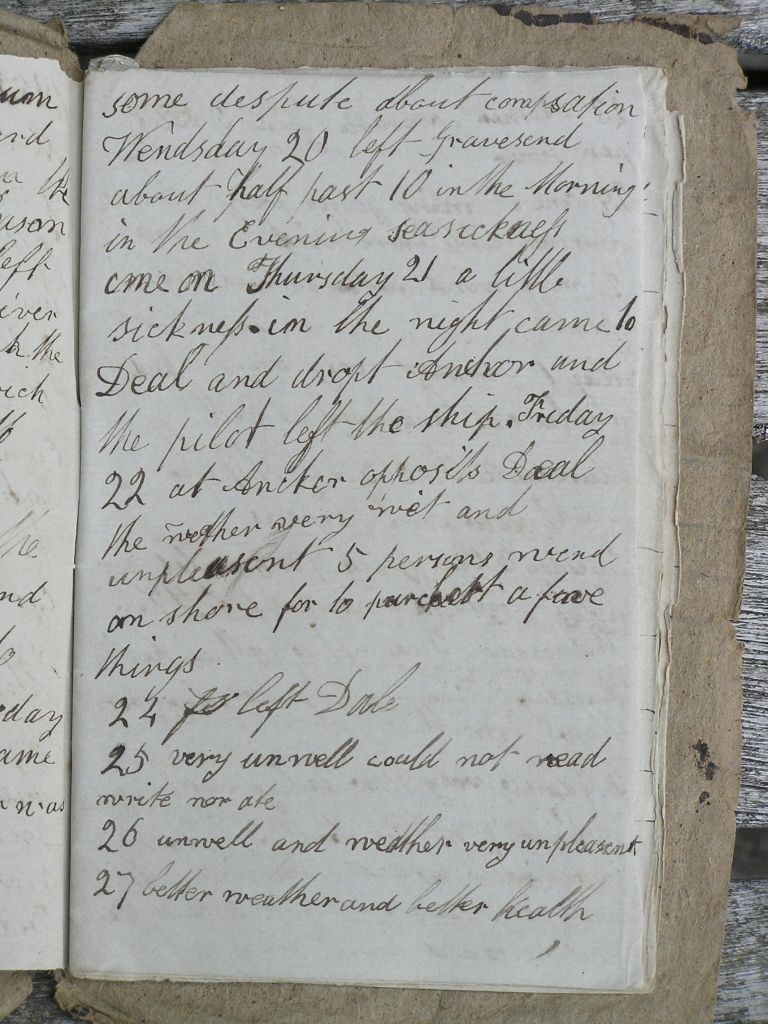 um
ard
the
ason
left
iver
the
ich
the
nd
to
day
ame
was
some despute about compsation
Wendsday 20 left Gravesend
about half past 10 in the Morning
in the Evening seasickness
cme on Thursday 21 a little
sickness. in the night came to
Deal and dropt Anchor and
the pilot left the ship. Friday
22 at Ancker opposits Deal
the wether very wet and
unpleasent 5 persons wend
on shore for to a fave
things
24 left Dale
25 very unwell could not read
write nor ate
26 unwell and weather very unpleasent
27 better weather and better health